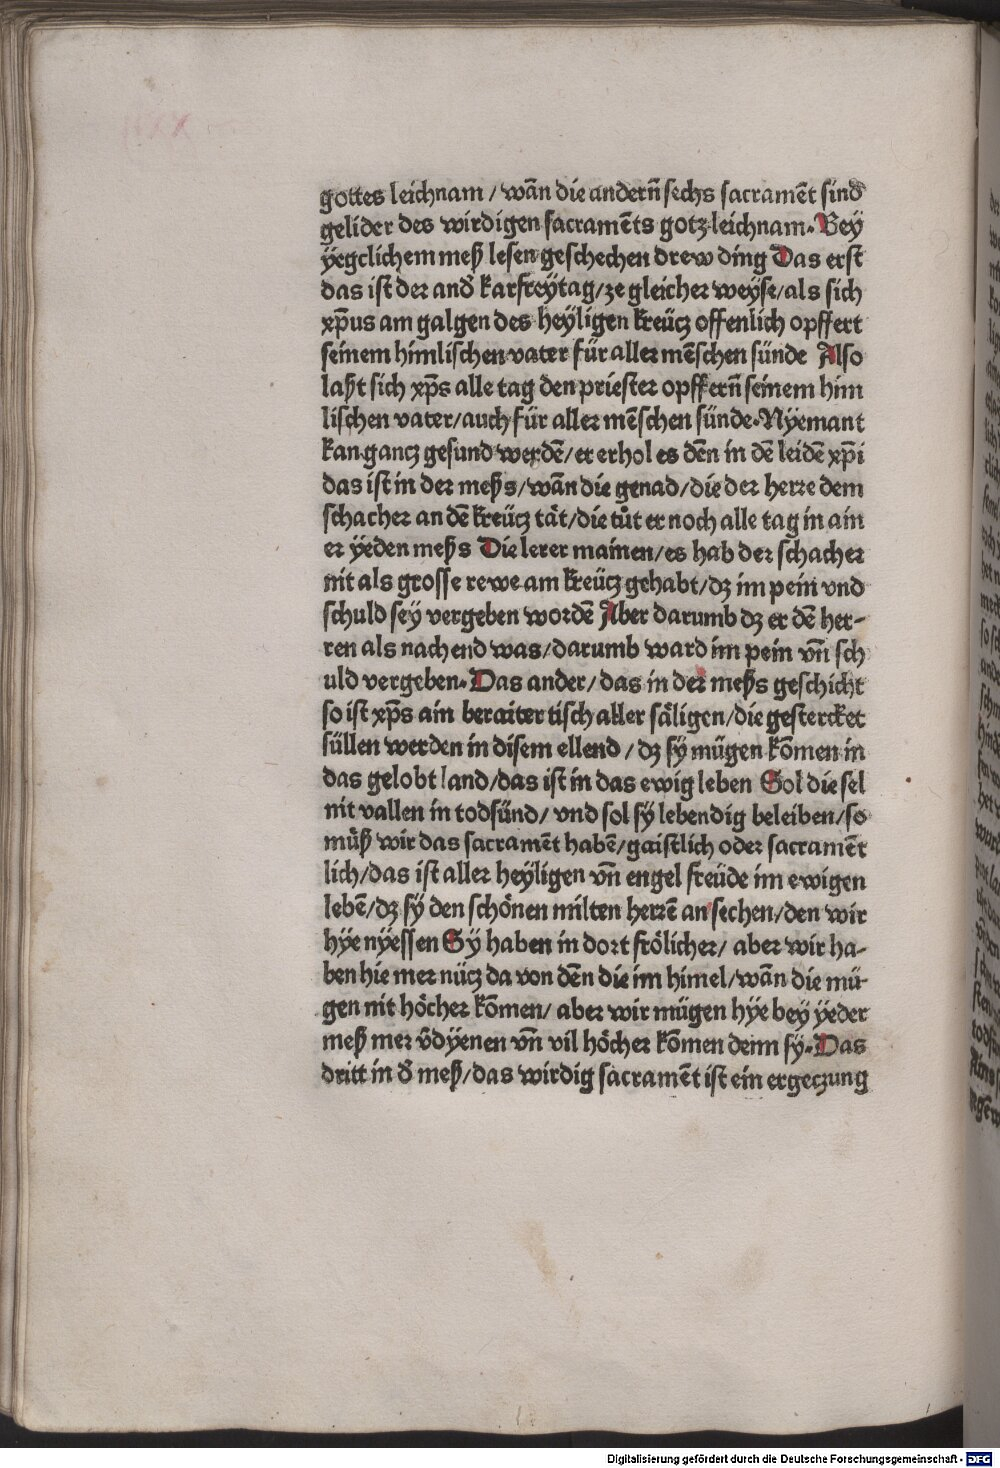 gottes leichnam / wān die andern̄ sechs sacramēt sind
gelider des wirdigen sacramēts gotz leichnam. Bey
yegclichem meß lesen geschechen drew ding Das erst
das ist der and̄ karfreytag/ ze gleicher weyse/ als sich
xp̄us am galgen des heyligen kreücz offenlich opffert
seinem himlischen vater für aller mēschen sünde Also
laßt sich xp̄s alle tag den priester opffern̄ seinem him
lischen vater/ auch für aller mēschen sünde. Nyemant
kan gancz gesund werdē/ er erhol es dēn in dē leidē xp̄i
das ist in der meßs/ wān die genad/ die der herre dem
schacher an dē kreücz tät/ die tůt er noch alle tag in ain
er yeden meßs Die lerer mainen/ es hab der schacher
nit als grosse rewe am kreücz gehabt/ dz im pein vnd
schuld sey vergeben wordē Aber darumb dz er dē her-
ren als nachend was/ darumb ward im pein vn̄ sch
uld vergeben. Das ander/ das in der meßs geschicht
so ist xp̄s ain beraiter tisch aller säligen/ die gestercket
süllen werden in disem ellend / dz sy mügen kōmen in
das gelobt land/ das ist in das ewig leben Sol die sel
nit vallen in todsünd/ vnd sol sy lebendig beleiben/ so
müß wir das sacramēt habē/ gaistlich oder sacramēt
lich/ das ist aller heyligen vn̄ engel freüde im ewigen
lebē/ dz sy den schönen milten herrē an sechen/ den wir
hye nyessen Sy haben in dort frölicher/ aber wir ha-
ben hie mer nücz da von dēn die im himel/ wān die mü-
gen nit höcher kōmen/ aber wir mügen hye bey yeder
meß mer v̄dyenen vn̄ vil höcher kōmen denn sy. Das
dritt in d̄ meß/ das wirdig sacramēt ist ein ergeczung
Digitalisierung gefördert durch die Deutsche Forschungsgemeinschaft - DFG